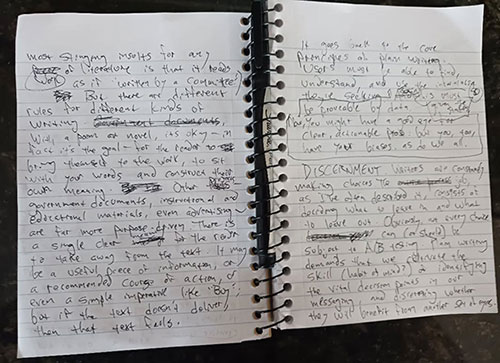 most stinging insults for any
of literature is that it reads
as if written by a committee
But there are different
rules for different kinds of
writing
With a poem or novel, it's okay – in
fact it's the goal – for the reader to
bring themself to the work, to sit
with your words and construct their
own meaning Other
government documents, instructional and
educational materials, even advertising
are far more purpose-driven. There is
a single clear for the reader
to take away from the text. It may
be a useful piece of information, or
a recommended course of action, or
even a simple imperative like "Buy"
but if the text doesn't deliver,
then that text fails.
It goes back to the core
principles of plain writing:
Users must be able to find,
understand and use the information
to be proveable by data
you might have a good eye for
clear, actionable prose, but you also
have your biases, as do we all.
DISCERNMENT writers are constantly
making choices
as I've often described it, consists of
deciding what to leave in and what
to leave out. Obviously, not every choice
can (or should) be
subject to A/B testing.
demands that we cultivate the
skill (habit of mind?) of identifying
the vital decision points in our
messaging, and discerning whether
they will benefit from another set of eyes.